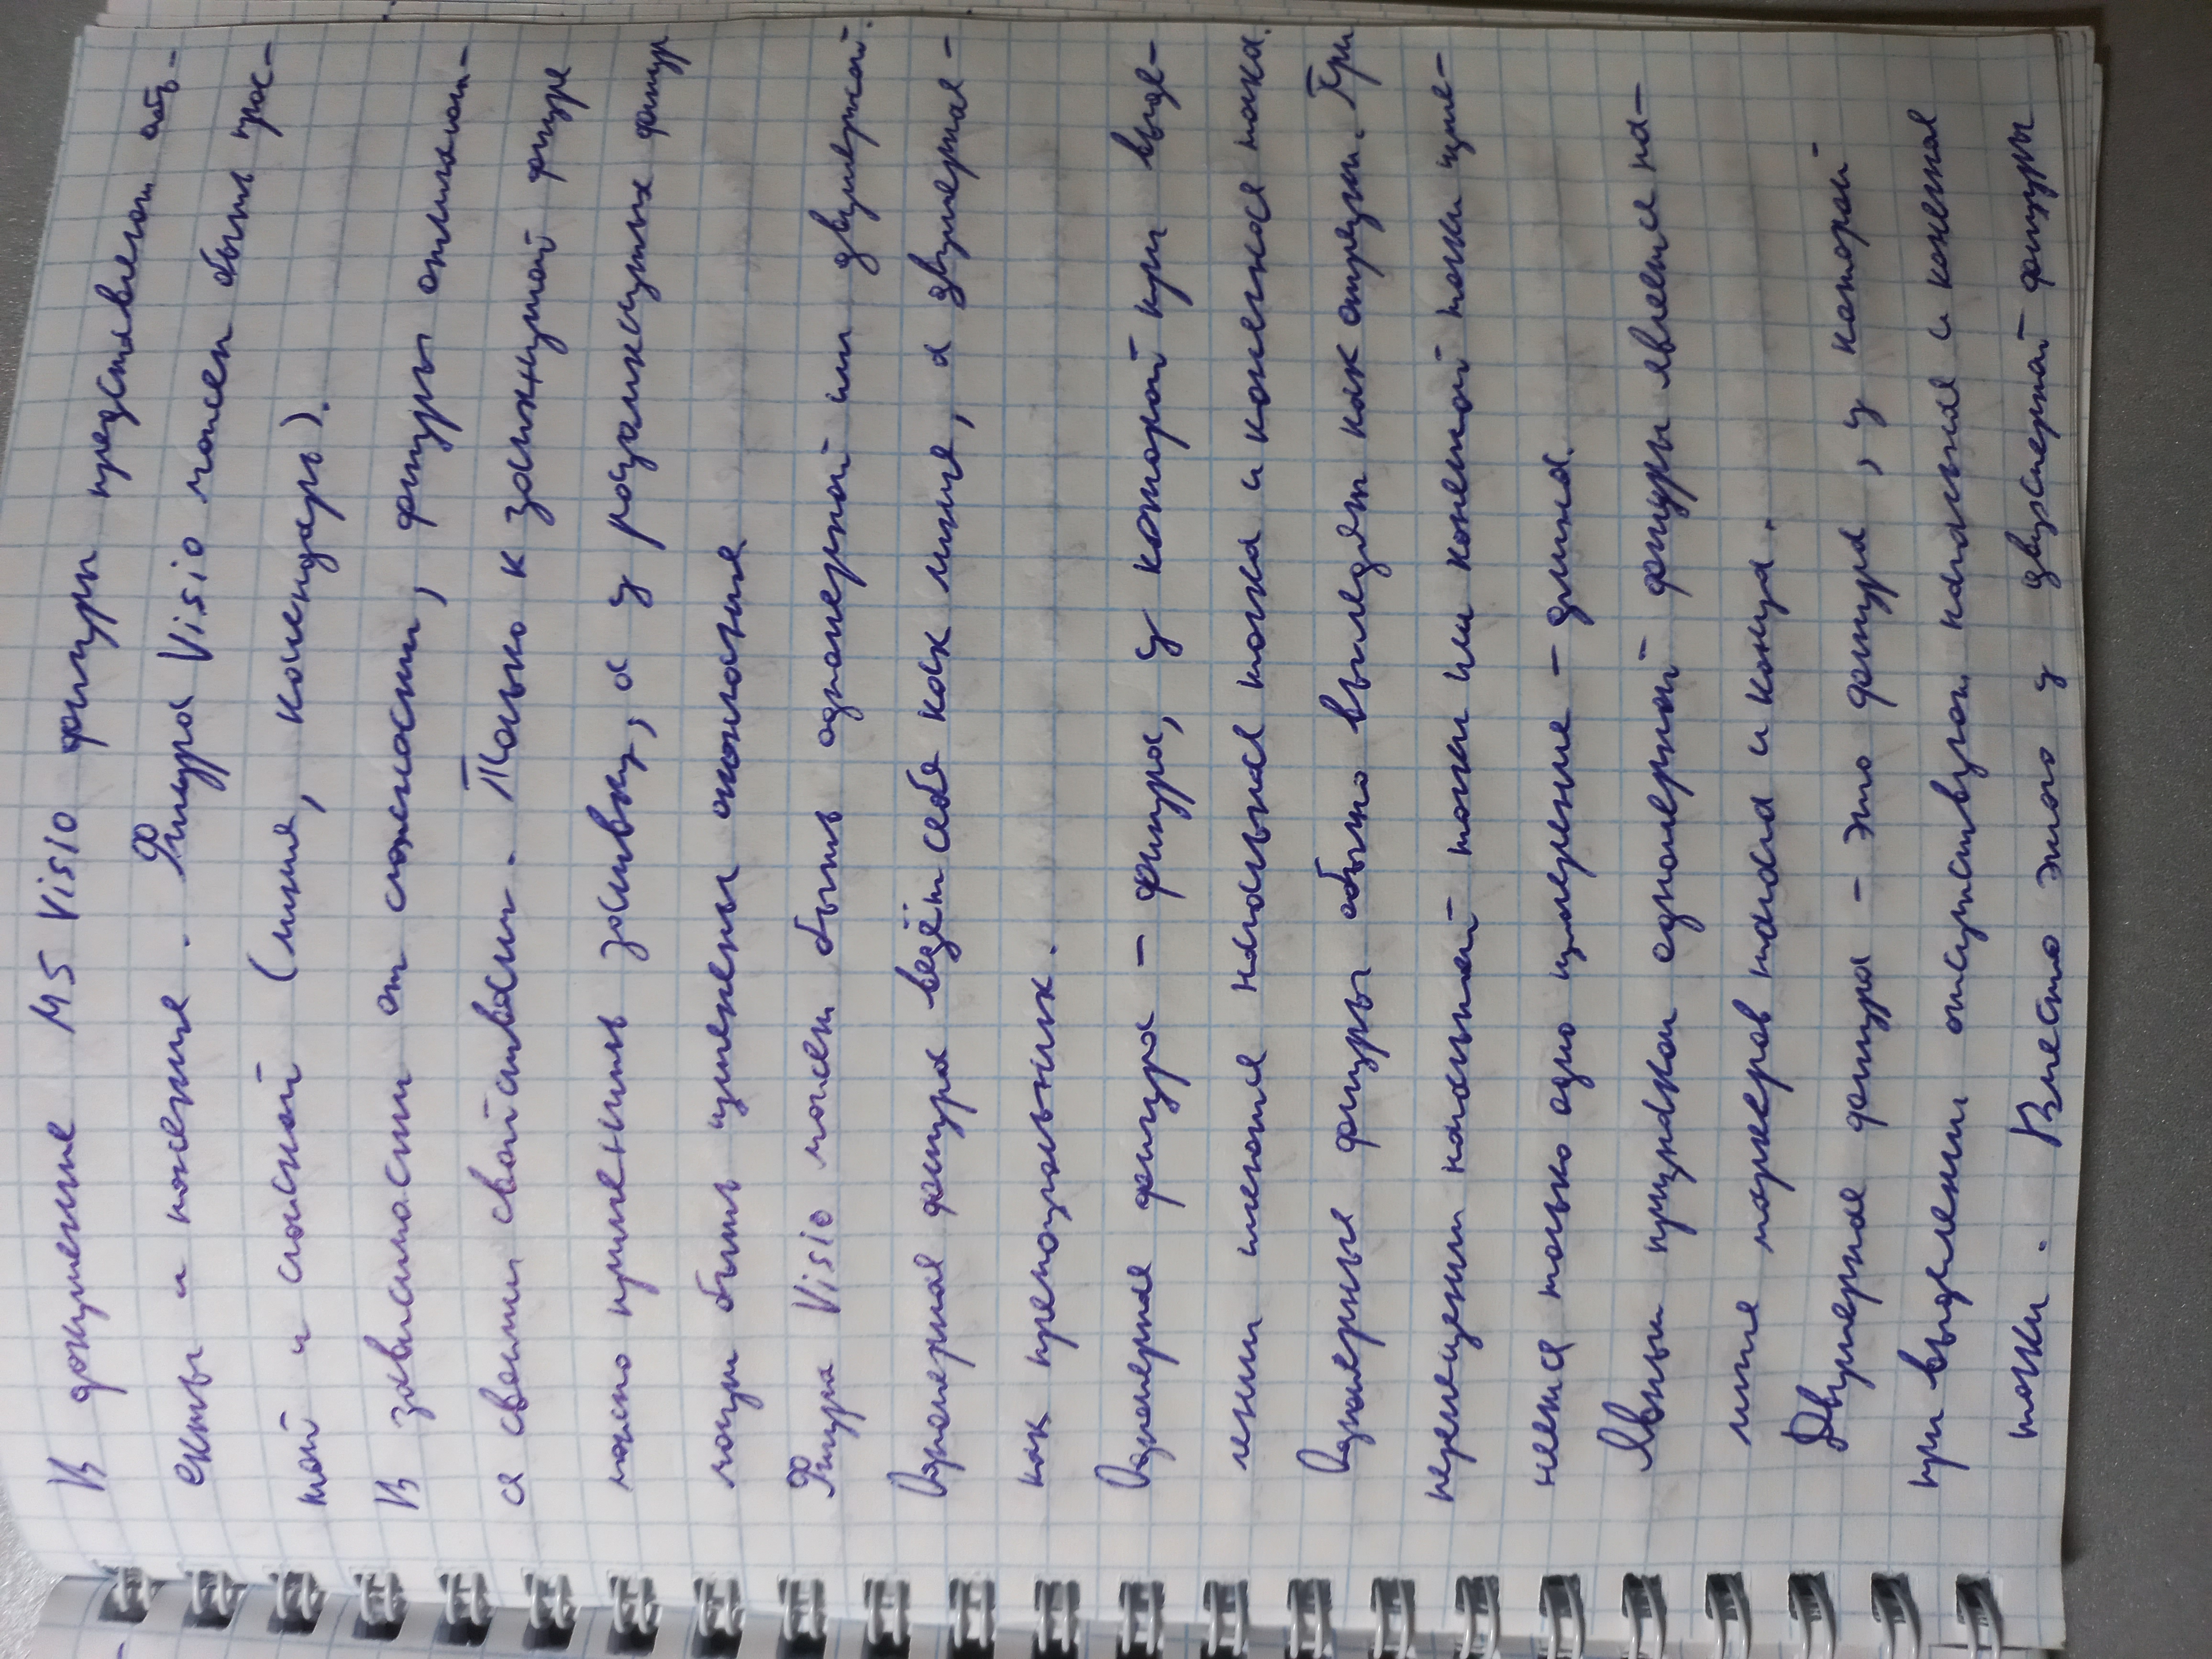 В документе MS Visio фигуры представляют объ-
екты и понятия. Фигура Visio может быть прос-
той и сложной (линия, календарь).
В зависимости от сложности, фигуры отличают-
ся своими свойствами. Только к замкнутой фигуре
можно применить заливку, а у разомкнутых фигур
могут быть изменены окончания
Фигура Visio может быть одномерной или двумерной.
Одномерная фигура ведёт себя как линия, а двумерная -
как прямоугольник.
Одномерная фигура - фигура, у которой при выде-
лении имеются начальная точка и конечная точка.
Одномерные фигуры обычно выглядят как отрезки. При
перемещении начальной точки или конечной точки изме-
няется только одно измерение - длина.
Явным признаком одномерной фигуры является на-
личие маркеров начала и конца.
Двумерная фигура - это фигура, у которой
при выделении отсутствуют начальная и конечная
точки. Вместо этого у двухмерной фигуры